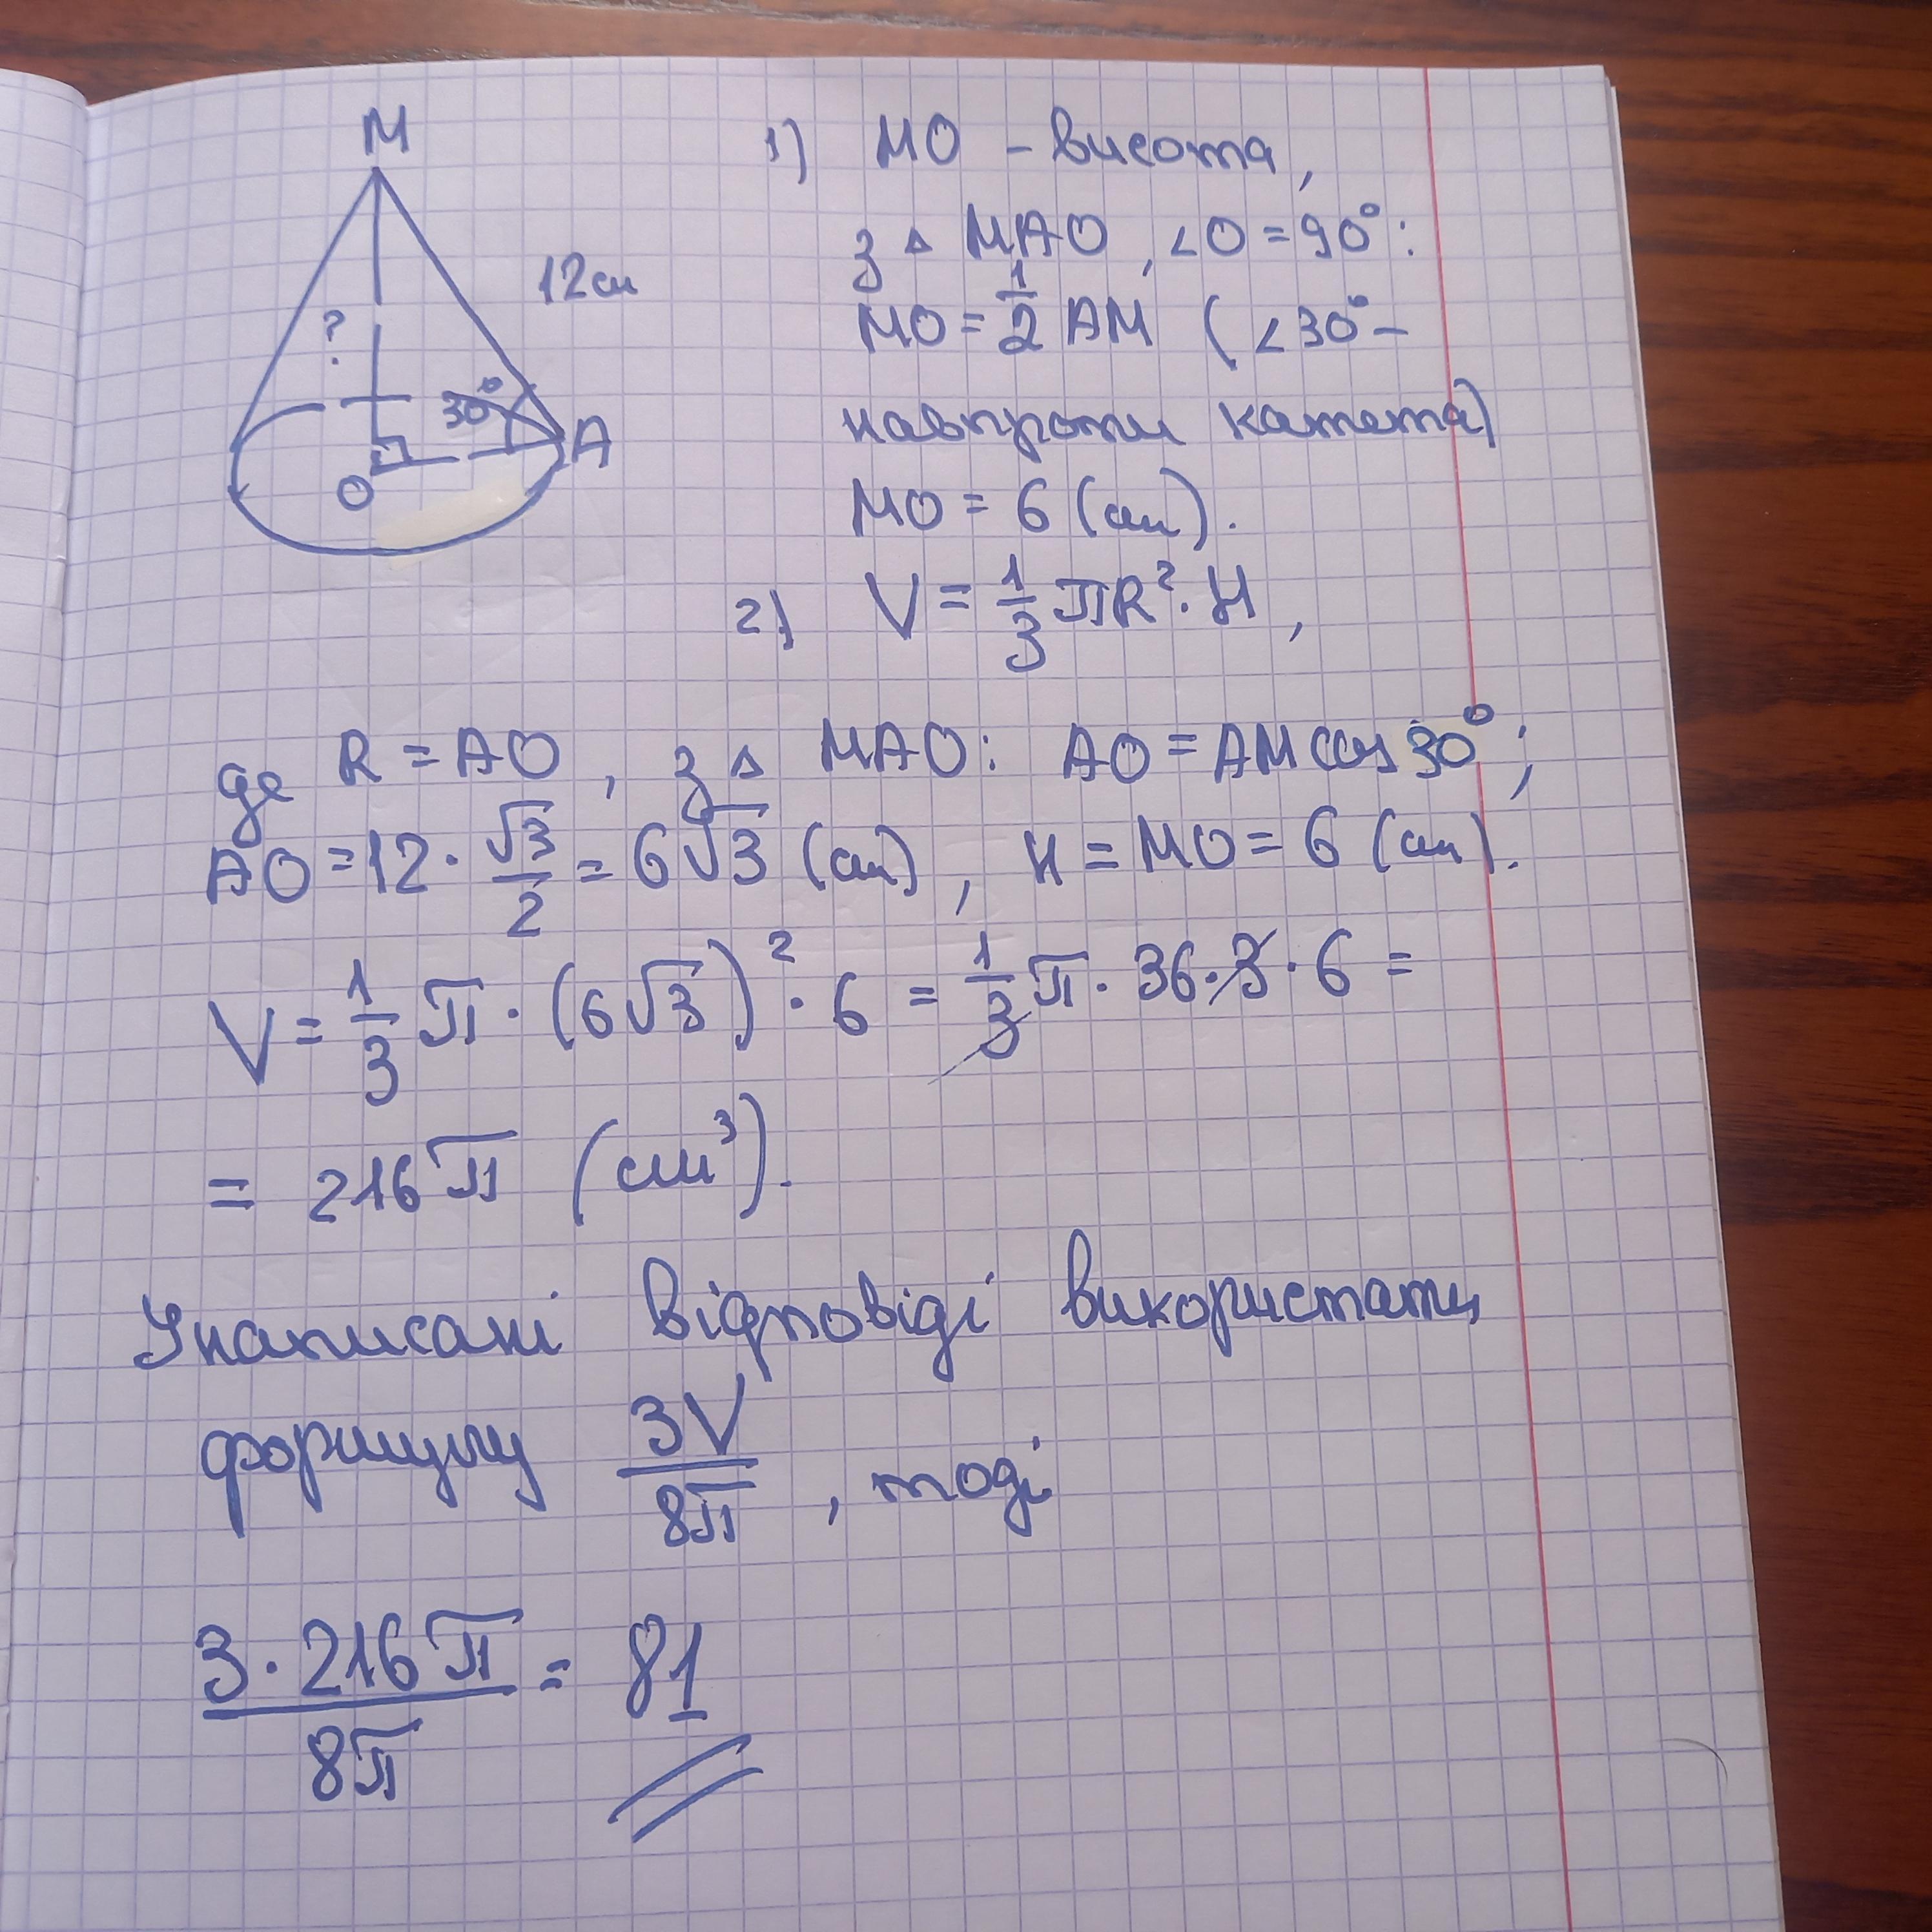 M
12см
?
30°
A
O
1) MO – висота,
з △ MAO, ∠O = 90°:
MO = 1/2 AM (∠30° –
навпроти катета)
MO = 6 (см).
2) V = 1/3 πR²·H,
де R = AO, з △ MAO: AO = AM cos 30°;
AO = 12 · √3/2 = 6√3 (см), H = MO = 6 (см).
V = 1/3 π · (6√3)² · 6 = 1/3 π · 36 · 3 · 6 =
= 216π (см³).
У написані відповіді використати
формулу 3V/8π, тоді
3·216π/8π = 81